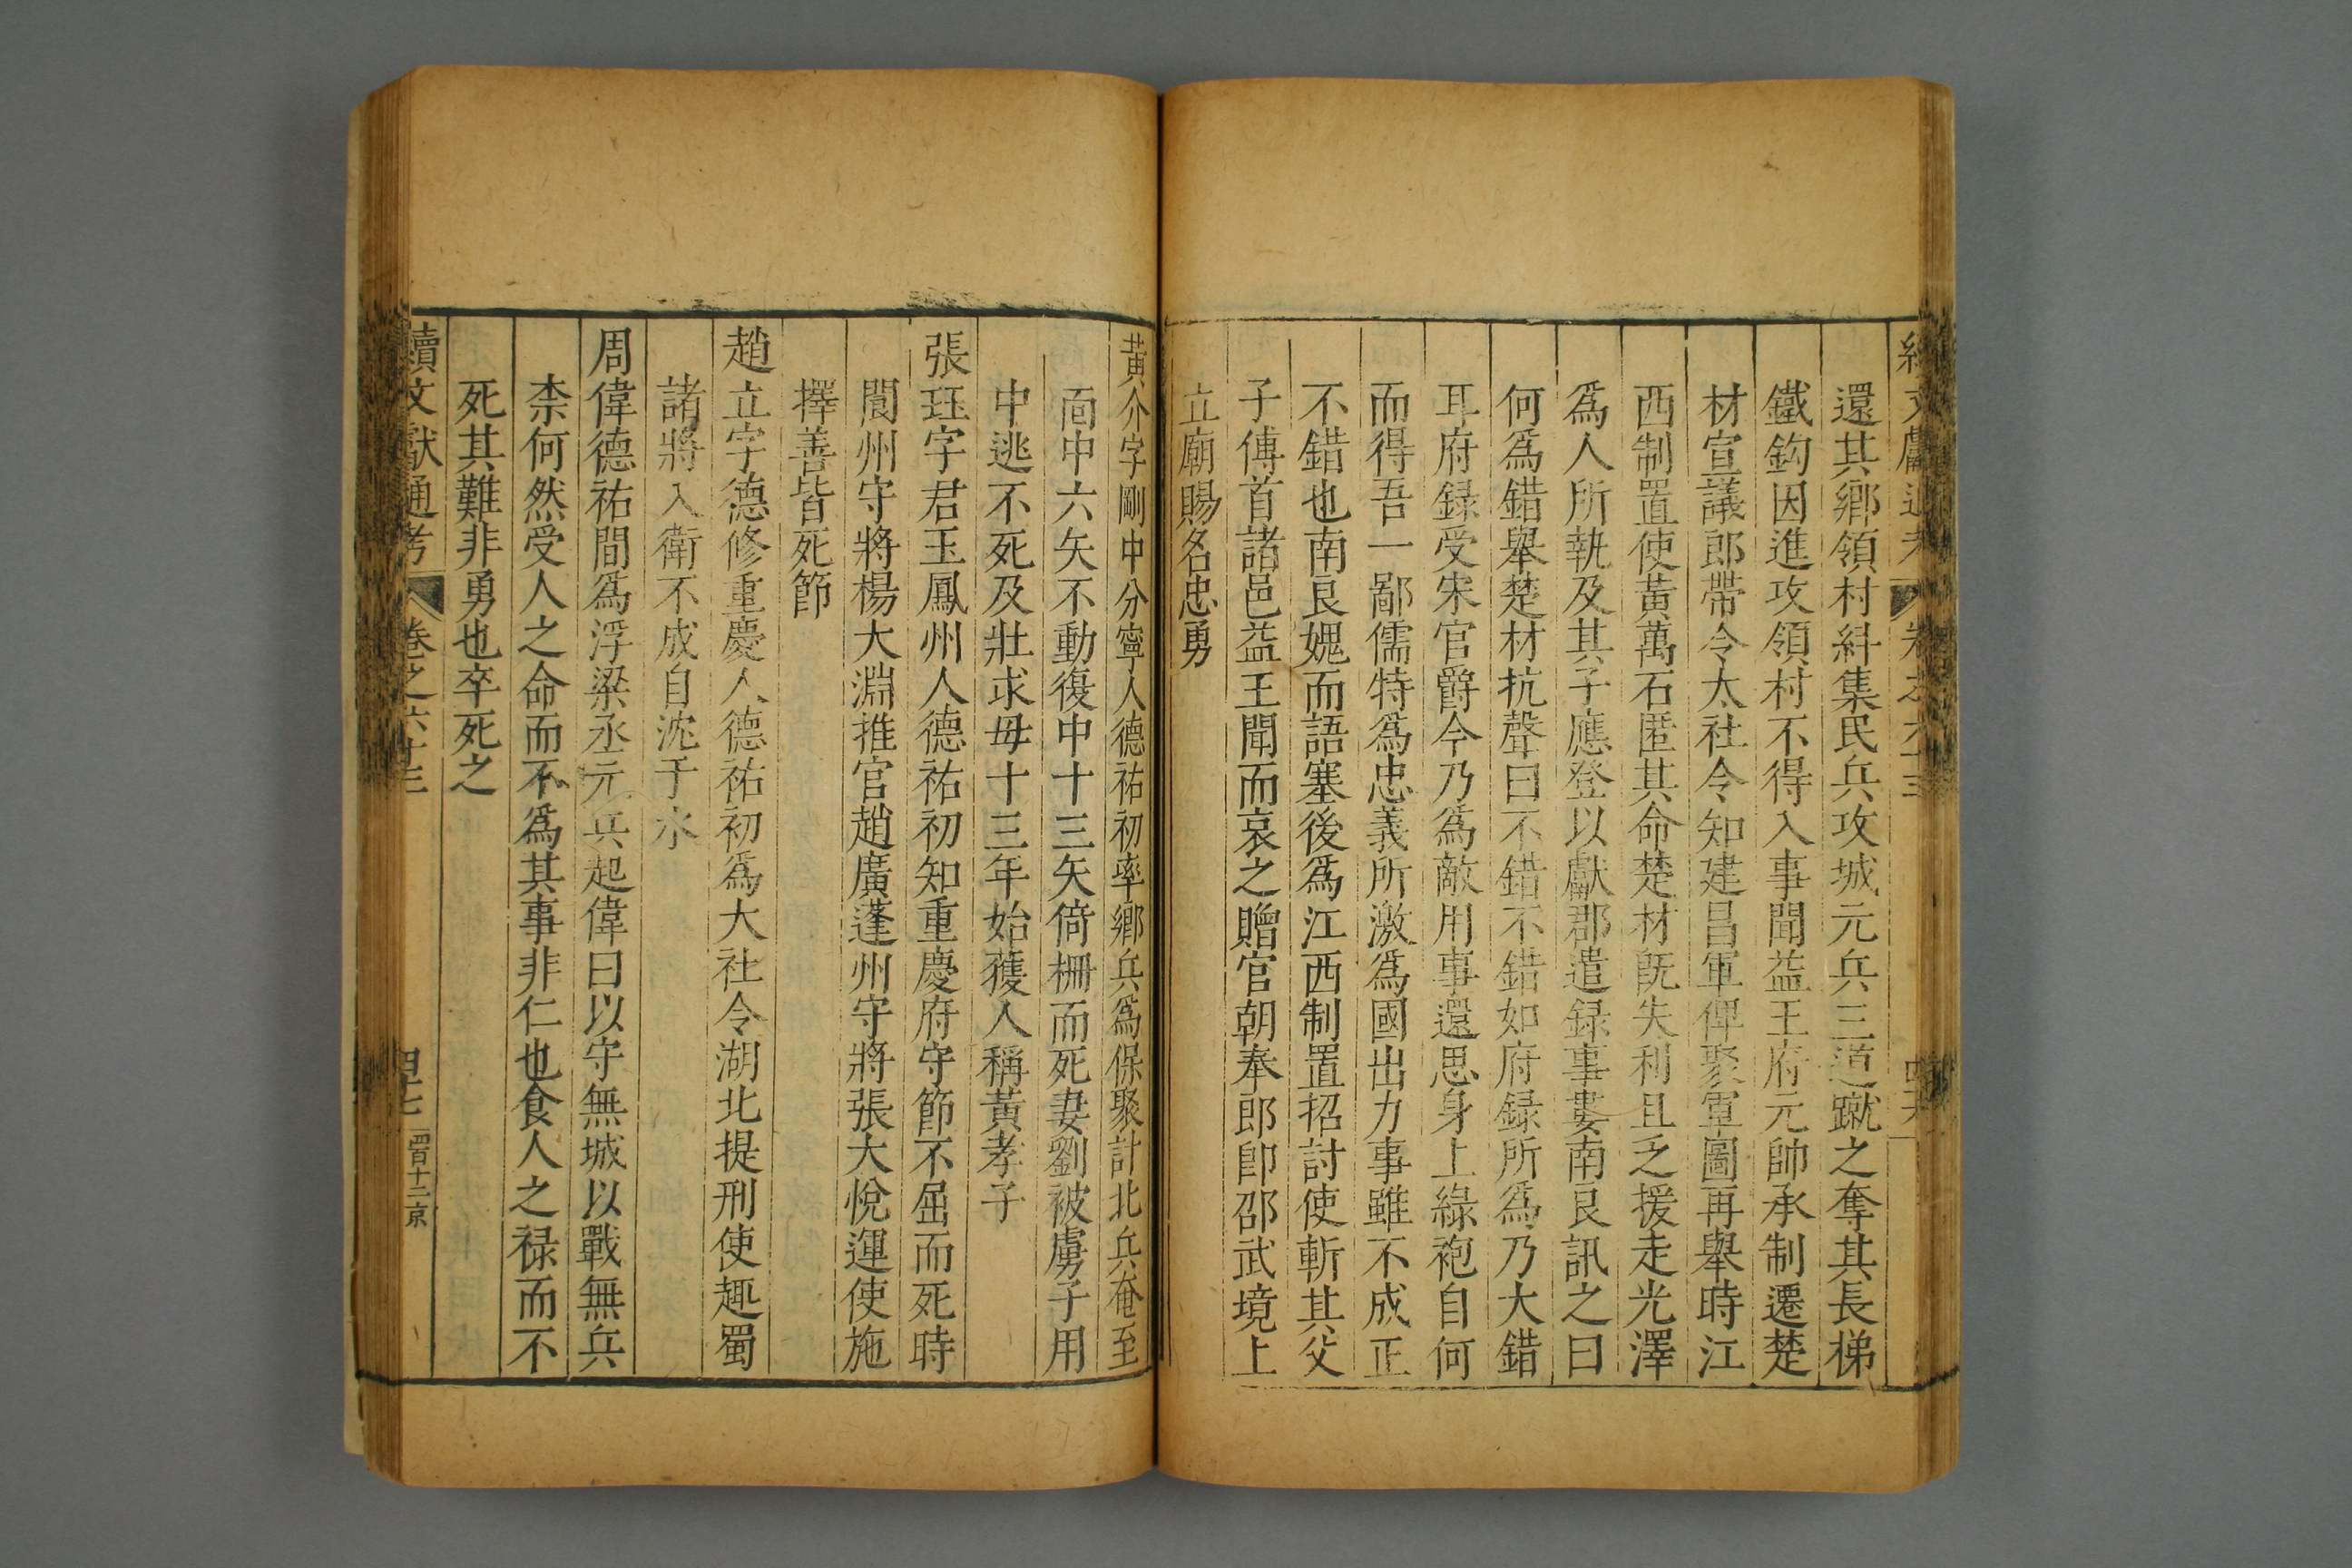 續文獻通考 卷之六十三 四十六
還其鄉領村糾集民兵攻城元兵三道蹴之奪其長梯
鐵鈎因進攻領村不得入事聞益王府元帥承制遷楚
材宣議郎帶令太社令知建昌軍俾聚軍圖再舉時江
西制置使黃萬石匿其命楚材旣失利且乏援走光澤
爲人所執及其子應登以獻郡遣録事婁南良訊之曰
何爲錯舉楚材抗聲曰不錯不錯如府録所爲乃大錯
耳府録受宋官爵今乃爲敵用事還思身上綠袍自何
而得吾一鄙儒特爲忠義所激爲國出力事雖不成正
不錯也南良媿而語塞後爲江西制置招討使斬其父
子傳首諸邑益王聞而哀之贈官朝奉郎卽邵武境上
立廟賜名忠勇
黃介字剛中分寧人德祐初率鄉兵爲保聚計北兵奄至
靣中六矢不動復中十三矢倚柵而死妻劉被虜子用
中逃不死及壯求母十三年始獲人稱黃孝子
張珏字君玉鳳州人德祐初知重慶府守節不屈而死時
閬州守將楊大淵推官趙廣蓬州守將張大悅運使施
擇善皆死節
趙立字德修重慶人德祐初爲大社令湖北提刑使趣蜀
諸將入衛不成自沈于水
周偉德祐間爲浮梁丞元兵起偉曰以守無城以戰無兵
柰何然受人之命而不爲其事非仁也食人之禄而不
死其難非勇也卒死之
續文獻通考 卷之六十三 四十七 四百十二 京